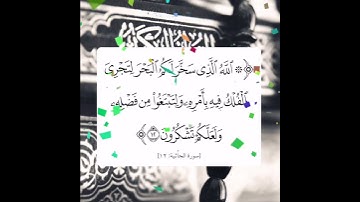 ﴿۞ ٱللَّهُ ٱلَّذِى سَخَّرَ لَكُمُ ٱلْبَحْرَ لِتَجْرِىَ
ٱلْفُلْكُ فِيهِ بِأَمْرِهِۦ وَلِتَبْتَغُوا۟ مِن فَضْلِهِۦ
وَلَعَلَّكُمْ تَشْكُرُونَ ١٢﴾
[سورة الجاثية: ١٢]